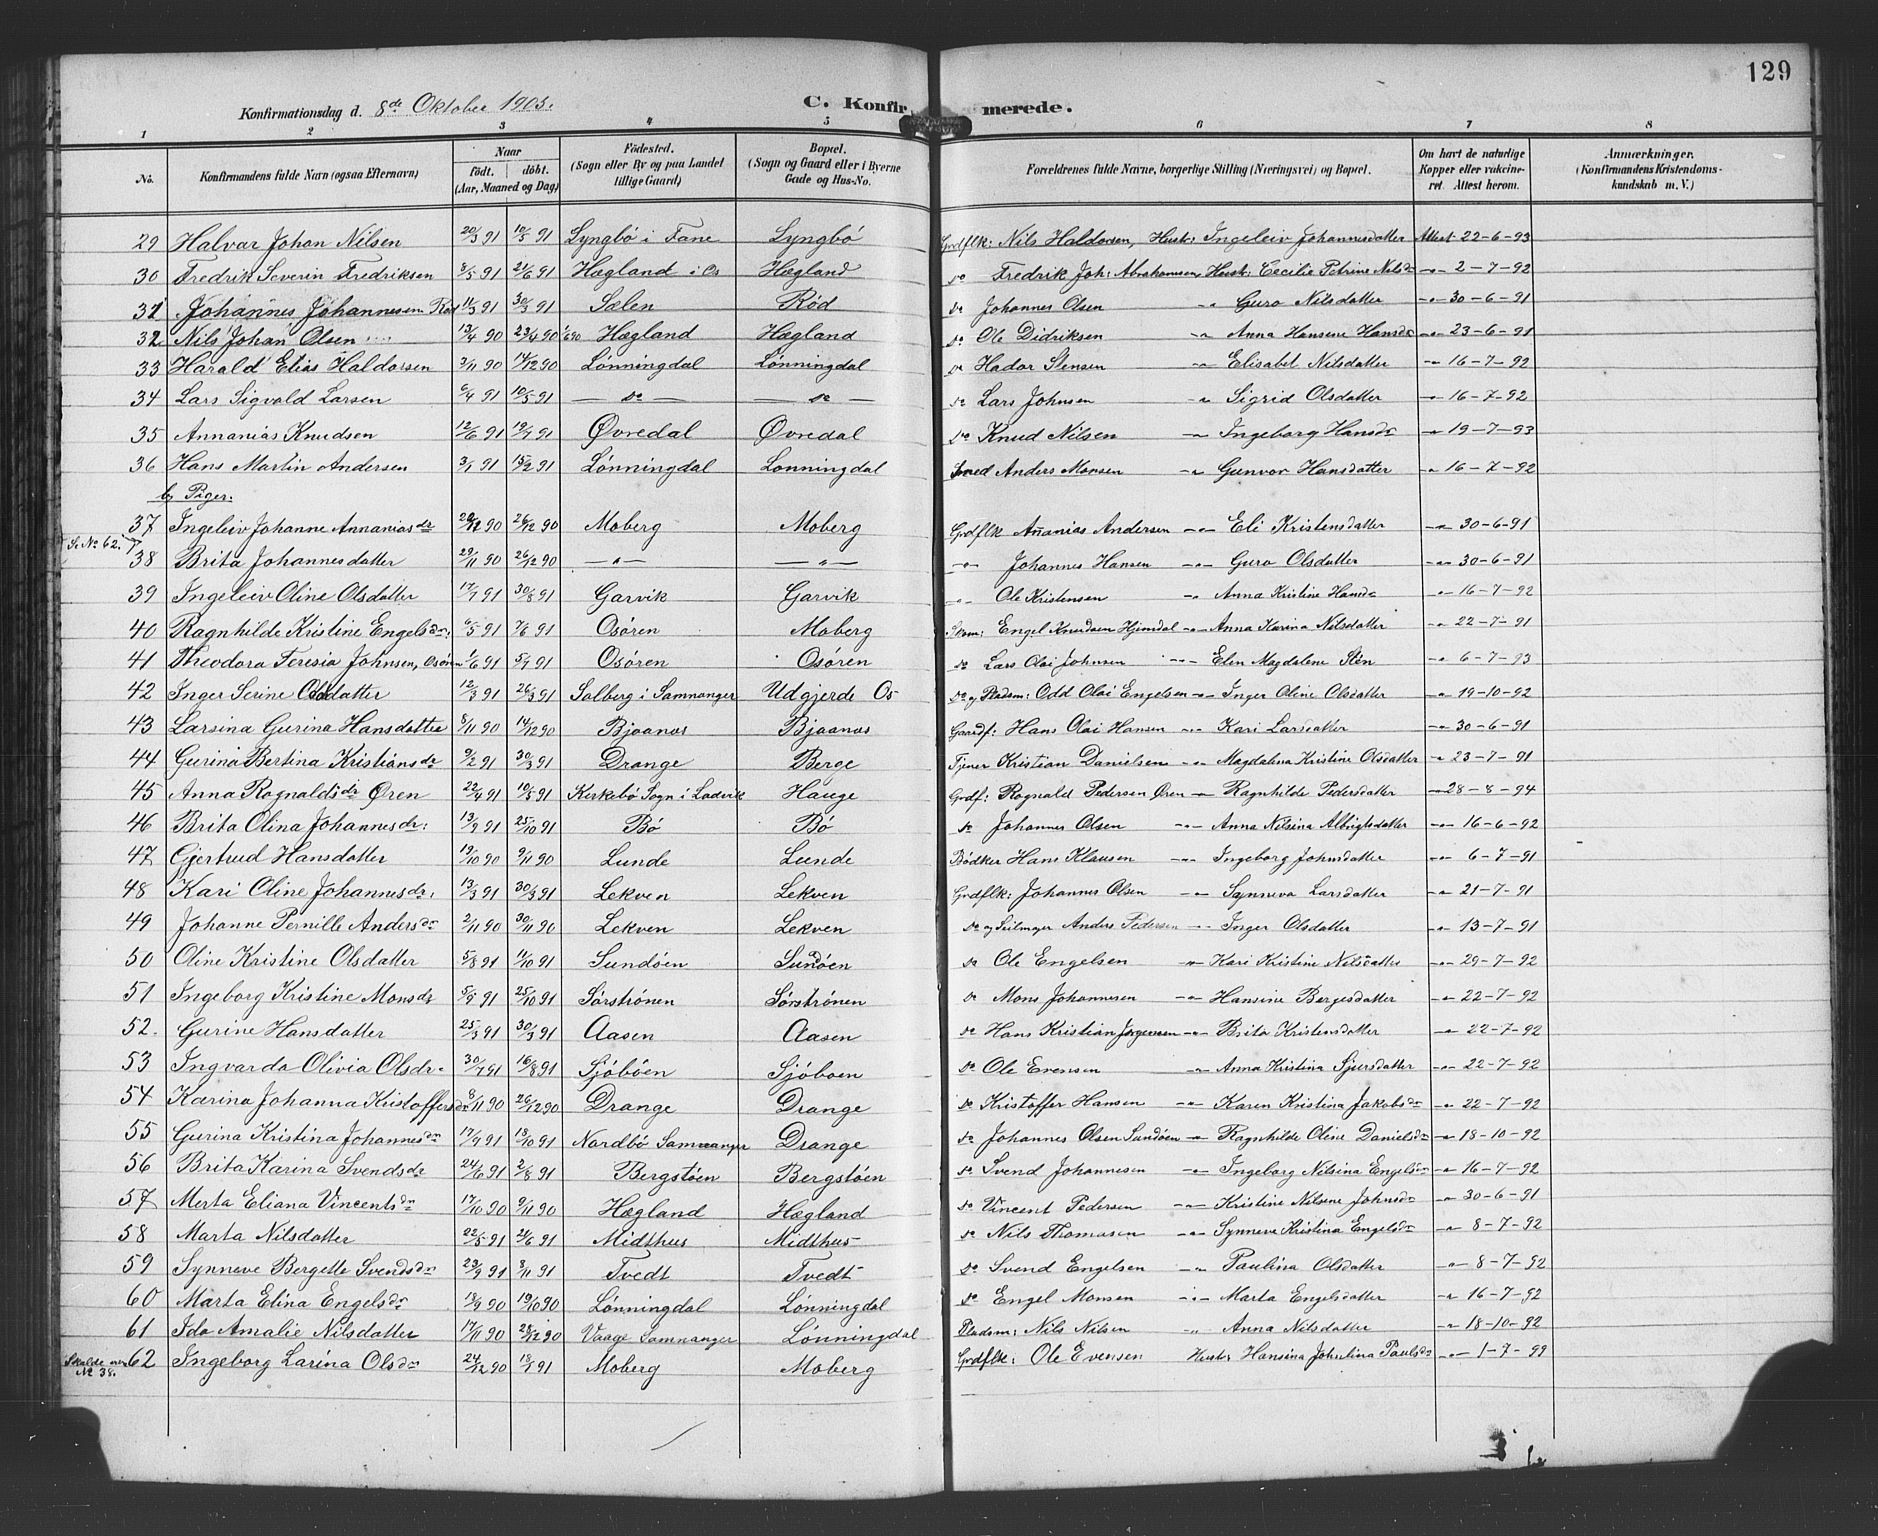 129
Konfirmationsdag d. 8de Oktober 1905.
C. Konfirmerede.
1 2 3 4 5 6 7 8
No. Konfirmandens fulde Navn (ogsaa Efternavn) Naar født. døbt. (Aar, Maaned og Dag) Fødested. (Sogn eller By og paa Landet tillige Gaard) Bopæl. (Sogn og Gaard eller i Byerne Gade og Hus-No. Forældrenes fulde Navne, borgerlige Stilling (Næringsvei) og Bopæl. Om havt de naturlige Kopper eller vakcineret. Attest herom. Anmærkninger. (Konfirmandens Kristendomskundskab m. V.)
29 Halvar Johan Nilsen 20/3 91 10/5 91 Lyngbö i Fane Lyngbö Grdflk: Nils Haldorsen, Hust: Ingeleiv Johannesdatter Attest 22-6-93
30 Fredrik Severin Fredriksen 8/5 91 21/6 91 Hægland i Os Hægland do Fredrik Joh: Abrahamsen Hust: Cecilie Petrine Nilsdr -"- 2-7-92
31 Johannes Johannesen Röd 11/3 91 30/3 91 Sælen Röd do Johannes Olsen " Guro Nilsdatter -"- 30-6-91
32 Nils Johan Olsen 13/4 90 23/4 90 Hægland Hægland do Ole Didriksen -"- Anna Hansine Hansdr -"- 23-6-91
33 Harald Elias Haldorsen 3/11 90 14/12 90 Lönningdal Lönningdal do Hador Stensen -"- Elisabet Nilsdatter -"- 16-7-92
34 Lars Sigvald Larsen 6/4 91 10/5 91 — do — — do — do Lars Johnsen -"- Sigrid Olsdatter -"- 16-7-92
35 Annanias Knudsen 12/6 91 19/7 91 Øvredal Øvredal do Knud Nilsen -"- Ingeborg Hansdr -"- 19-7-93
36 Hans Martin Andersen 3/1 91 15/2 91 Lönningdal Lonningdal Smed Anders Monsen -"- Gunvor Hansdatter -"- 16-7-92
b, Piger:
37 Ingeleiv Johanne Annaniasdr 20/11 90 26/12 90 Moberg Moberg Grdflk Ananias Andersen -"- Eli Kristensdatter -"- 30-6-91
Se No 62.
38 Brita Johannesdatter 29/11 90 26/12 90 —"— —"— -"- Johannes Hansen -"- Guro Olsdatter -"- 30-6-91
39 Ingeleiv Oline Olsdatter 17/7 91 30/8 91 Garvik Garvik -"- Ole Kristensen -"- Anna Kristine Hansdr -"- 16-7-92
40 Ragnhilde Kristine Engelsdr: 6/5 91 7/6 91 Osören Moberg Skom: Engel Knudsen Hjemdal -"- Anna Karina Nilsdatter -"- 22-7-91
41 Theodora Teresia Johnsen, Osören 1/6 91 5/7 91 Osören Osören do Lars Olai Johnsen -"- Elen Magdalene Stén -"- 6-7-93
42 Inger Serine Olsdatter 12/3 91 26/3 91 Solberg i Samnanger Udgjerde Os do og Pladsm: Odd Olai Engelsen -"- Inger Oline Olsdatter -"- 19-10-92
43 Larsina Gurina Hansdatter 8/11 90 14/12 90 Bjaanæs Bjaanæs Gaardf: Hans Olai Hansen -"- Kari Larsdatter -"- 30-6-91
44 Gurina Bertina Kristiansdr 9/2 91 30/3 91 Drange Berge Tjener Kristian Danielsen -"- Magdalena Kristine Olsdatter -"- 23-7-91
45 Anna Ragnaldsdr Øren 22/4 91 10/5 91 Kirkebö Sogn i Ladvik Hauge Grdf: Ragnald Pedersen Øren -"- Ragnhilde Pedersdatter -"- 28-8-94
46 Brita Olina Johannesdr: 13/9 91 25/10 91 Bö Bö do Johannes Olsen -"- Anna Nilsina Albrigtsdatter -"- 16-6-92
47 Gjertrud Hansdatter 19/10 90 9/11 90 Lunde Lunde Bödker Hans Klausen -"- Ingeborg Johnsdatter -"- 6-7-91
48 Kari Oline Johannesdr: 13/3 91 30/3 91 Lekven Lekven Grdflk: Johannes Olsen -"- Synneva Larsdatter -"- 21-7-91
49 Johanne Pernille Andersdr 2/11 90 30/11 90 Lekven Lekven do og Seilmager Anders Pedersen -"- Inger Olsdatter -"- 13-7-91
50 Oline Kristine Olsdatter 5/8 91 11/10 91 Sundöen Sundöen do Ole Engelsen " Kari Kristine Nilsdatter -"- 29-7-92
51 Ingeborg Kristine Monsdr 5/9 91 25/10 91 Sörströnen Sörströnen do Mons Johannesen -"- Hansine Bergesdatter -"- 22-7-92
52. Gurine Hansdatter 25/3 91 30/3 91 Aasen Aasen do Hans Kristian Jörgensen -"- Brita Kristensdatter -"- 22-7-92
53 Ingvarda Olivia Olsdr. 30/7 91 16/8 91 Sjöböen Sjöboen do Ole Evensen -"- Anna Kristina Sjursdatter -"- 22-7-92
54 Karina Johanna Kristoffersdr 8/11 90 26/12 90 Drange Drange do Kristoffer Hansen -"- Karen Kristina Jakobsdr -"- 22-7-92
55 Gurina Kristina Johannesdr 17/9 91 18/10 91 Nordbö Samnanger Drange do Johannes Olsen Sundöen -"- Ragnhilde Oline Danielsdr -"- 18-10-92
56 Brita Karina Svendsdr 24/6 91 2/8 91 Bergstöen Bergstöen do Svend Johannesen -"- Ingeborg Nilsina Engelsdr -"- 16-7-92
57 Merta Eliana Vincentsdr 17/10 90 9/11 90 Hægland Hægland do Vincent Pedersen -"- Kristine Nilsine Johnsdr -"- 30-6-91
58 Marta Nilsdatter 22/5 91 21/6 91 Midthus Midthus do Nils Thomasen -"- Synneve Kristina Engelsdr -"- 8-7-92
59 Synneve Bergette Svendsdr 23/9 91 8/11 91 Tvedt Tvedt do Svend Engelsen -"- Paulina Olsdatter -"- 8-7-92
60 Marta Elina Engelsdr 13/9 90 19/10 90 Lönningdal Lönningdal do Engel Monsen -"- Marta Engelsdatter -"- 16-7-92
61 Ida Amalie Nilsdatter 17/11 90 28/12 90 Vaage Samnanger Lönningdal Pladsm: Nils Nilsen -"- Anna Nilsdatter -"- 18-10-92
62 Ingeborg Larina Olsdr 24/12 90 18/1 91 Moberg Moberg Grdflk: Ole Evensen Hust: Hansina Johulina Paulsdr -"- 1-7-99
Skulde
No 38.